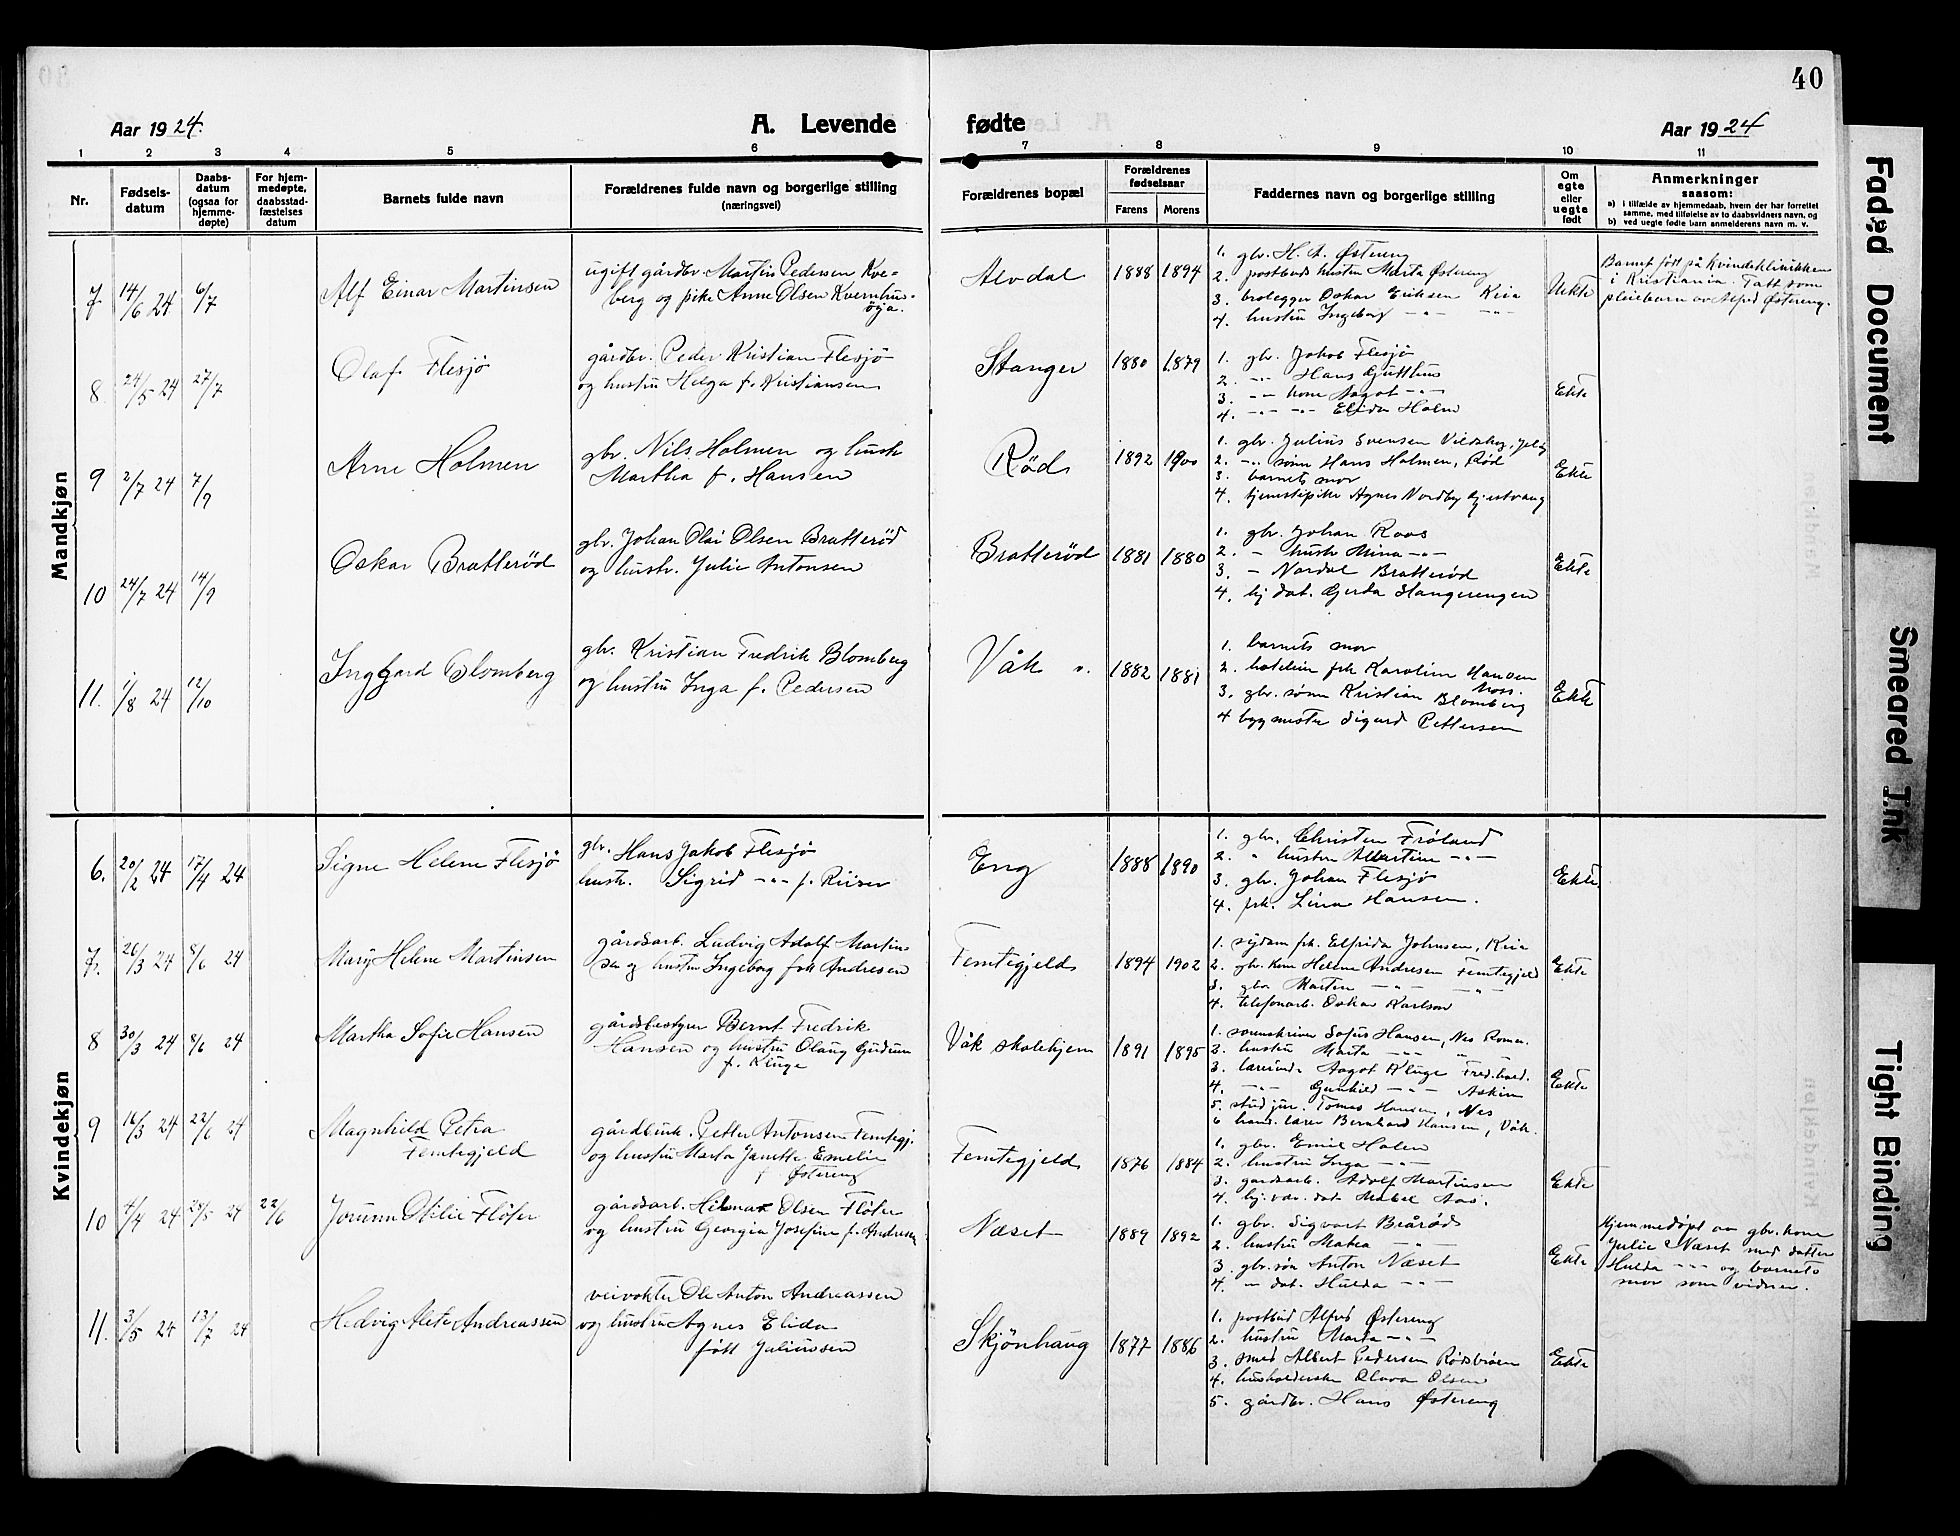 40
Aar 1924.
A. Levende
fødte
Aar 1924
1 2 3 4 5 6 7 8 9 10 11
Nr.
Fødsels-
datum
Daabs-
datum
(ogsaa for
hjemme-
døpte)
For hjem-
medøpte,
daabsstad-
fæstelses
datum
Barnets fulde navn
Forældrenes fulde navn og borgerlige stilling
(næringsvei)
Forældrenes bopæl
Forældrenes
fødselsaar
Farens Morens
Faddernes navn og borgerlige stilling
Om
egte
eller
uegte
født
Anmerkninger
saasom:
a) i tilfælde av hjemmedaab, hvem der har forrettet
samme, med tilføielse av to daabsvidners navn, og
b) ved uegte fødte barn anmelderens navn m. v.
Mandkjøn
7 14/6 24 6/7
Alf Einar Martinsen
ugift gårdbr. Martin Pedersen Kve-
berg og pike Anne Olsen Kvernhus-
øya.
Alvdal
1888 1894
1. gbr. H. A. Østereng
2. postbuds hustru Marta Østereng
3. brolegger Oskar Eriksen Kria
4. hustru Ingeborg -"- -"-
Uekte
Barnet født på Kvindeklinikken
i Kristiania. Tatt som
pleiebarn av Alfred Østereng.
8. 24/5 24 27/7
Olaf Flesjø
gårdbr. Peder Kristian Flesjø
og hustru Helga f. Kristiansen
Stanger
1880 1879
1. gbr. Jakob Flesjø
2. -"- Hans Gutthus
3. -"- kone Aagot -"-
4. -"- -"- Elida Holm
Ekte
9 2/7 24 7/9
Arne Holmen
gbr. Nils Holmen og hustr.
Martha f. Hansen
Rød
1892 1900
1. gbr. Julius Svensen Vildskog, Jeløy
2. -"- sønn Hans Holmen, Rød
3. barnets mor
4. tjenestepike Agnes Nordby
Ekte
10 24/7 24 14/9
Oskar Bratterød
gbr. Johan Olai Olsen Bratterød
og hustr. Julie Antonsen
Bratterød
1881 1880
1. gbr. Johan Roos
2. - hustr. Mina -"-
3. - Nordal Bratterød
4. hj. dat. Gerda Hangerengen
Ekte
11. 1/8 24 12/10
Inggard Blomberg
gbr. Kristian Fredrik Blomberg
og hustru Inga f. Pedersen
Våk
1882 1881
1. barnets mor
2. frk Karoline Hansen
Moss.
3. gbr. sønn Kristian Blomberg
4 byggmester Sigurd Pettersen
Ekte
Kvindekjøn
6. 20/2 24 17/4 24
Signe Helene Flesjø
gbr. Hans Jakob Flesjø
hustr. Sigrid -"- f. Riiser
Eng
1888 1890
1. gbr. Christen Frøland
2. " hustru Albertine -"-
3. gbr. Johan Flesjø
4. frk. Lina Hansen.
Ekte
7. 26/3 24 8/6 24
Mary Helene Martinsen
gårdsarb. Ludvig Adolf Martin-
sen og hustru Ingeborg født Andresen
Femtegjeld
1894 1902
1. sydam frk. Elfrida Johnsen, Kria
2. gbr. kone Helene Andresen Femtegjeld
3. gbr Martin -"- -"-
4. telefonarb. Oskar Karlson
Ekte
8 30/3 24 8/6 24
Martha Sofie Hansen
gårdsbestyrer Bernt Fredrik
Hansen og hustru Olaug Gudrun
f. Kluge
Våk skolehjem
1891 1895
1. sorenskriver Sofus Hansen, Nes Romer.
2. hustru Marta -"- " -
3. lærerinde Aagot Kluge Fred.hald.
4. -"- Gunhild -"- Askim
5. stud jur. Tomas Hansen, Nes
6 lærer Bernhard Hansen, Våk.
Ekte
9 16/3 24 22/6 24
Magnhild Petra
Femtegjeld
gårdbruk. Petter Antonsen Femtegj.
og hustru Marta Janette Emelie
f Østereng
Femtegjeld
1876 1884
1. gbr. Emil Holm
2. hustru Inga -"-
3. gardsarb. Adolf Martinsen
4. hj. vær. dat. Mabel Aas.
Ekte
10 4/4 24 24/5 24 22/6
Jorunn Otilie Fløter
gårdsarb. Hilmar Olsen Fløter
og hustru Georgia Josefine f. Andresen
Næset
1889 1892
1. gbr. Sigvart Brårød
2. hustru Matea -"-
3. gbr. søn Anton Næset
4. -"- dat. Hulda -"-
Ekte
Hjemmedøpt av gbr. kone
Julie Næset med datter
Hulda -"- og barnets
mor som vidner.
11. 3/5 24 13/7 24
Hedvig Alete Andreassen
veivokter Ole Anton Andreassen
og hustru Agnes Elida
født Juliussen
Skjønhaug
1877 1886
1. postbud Alfred Østereng
2. hustru Marta -"-
3. smed Albert Pedersen Rødsbråten
4. husholderske Olava Olsen
5. gårdbr. Hans Østereng
Ekte
Faded Document
Smeared Ink
Tight Binding